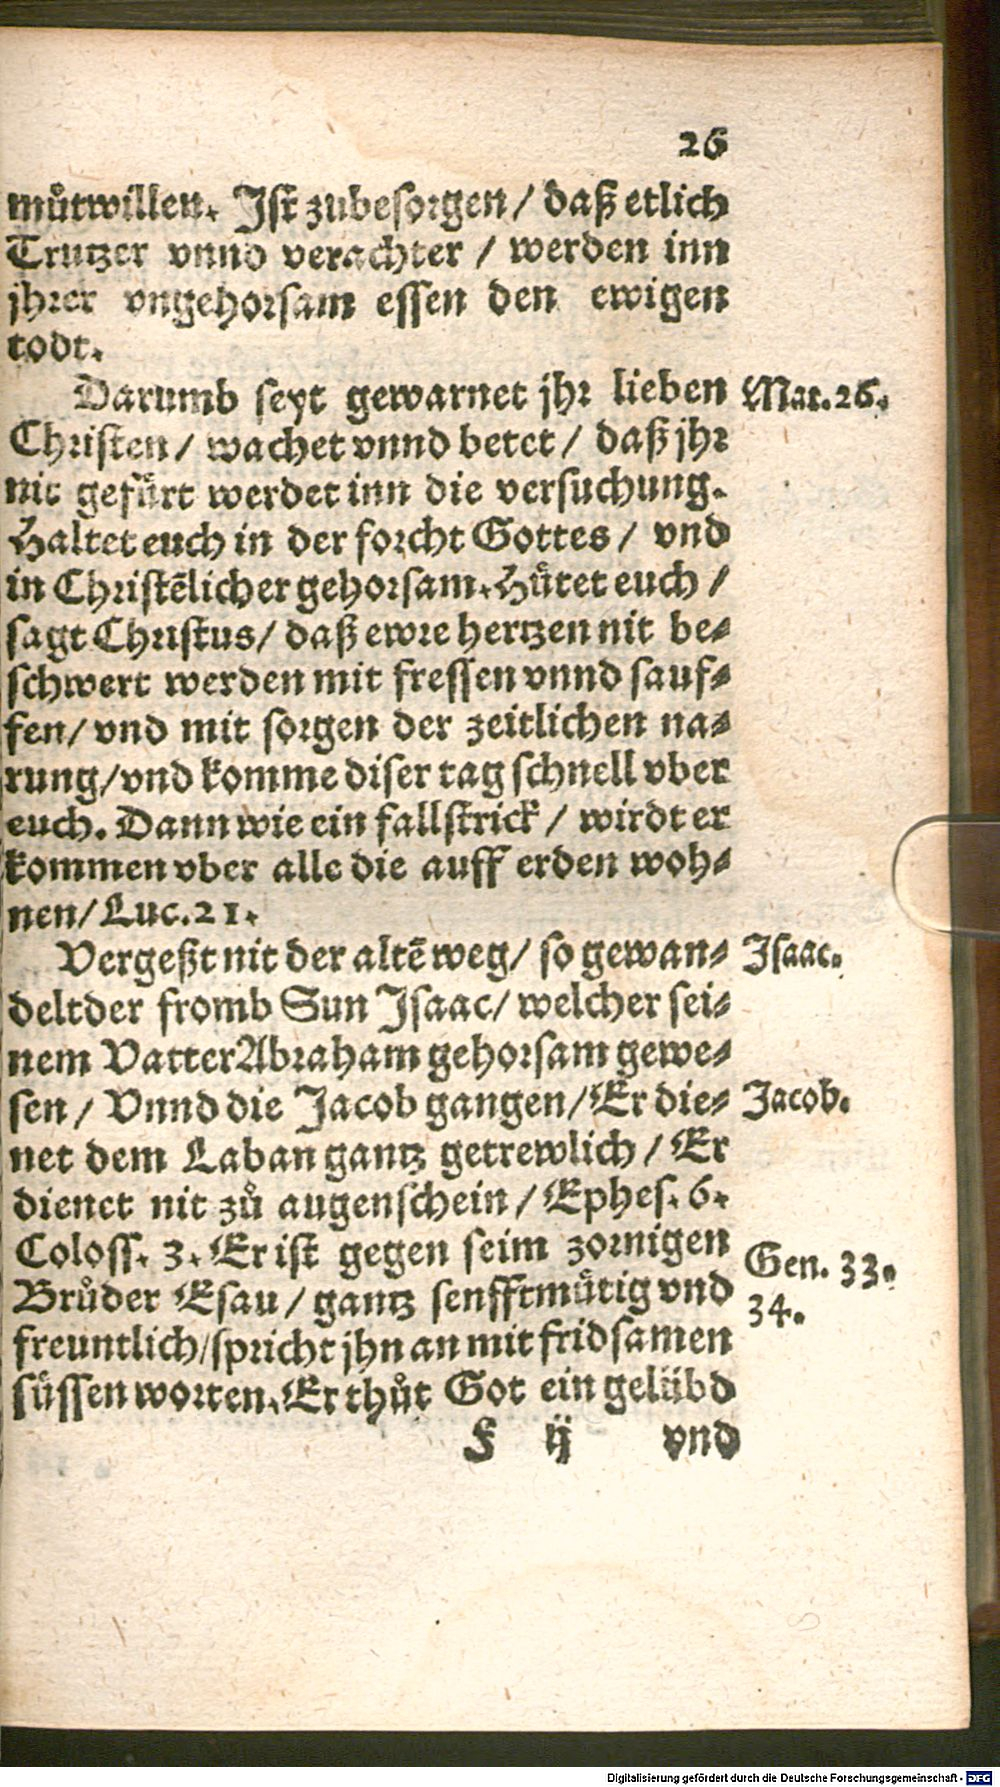 26
muͦtwillen. Ist zubesorgen / daß etlich
Trutzer vnnd verachter / werden inn
jhrer vngehorsam essen den ewigen
todt.
Darumb seyt gewarnet jhr lieben
Mat. 26.
Christen / wachet vnnd betet / daß jhr
nit gefuͤrt werdet inn die versuchung.
Haltet euch in der forcht Gottes / vnd
in Christẽlicher gehorsam. Huͤtet euch /
sagt Christus / daß ewre hertzen nit be⸗
schwert werden mit fressen vnnd sauf⸗
fen / vnd mit sorgen der zeitlichen na⸗
rung / vnd komme diser tag schnell vber
euch. Dann wie ein fallstrick / wirdt er
kommen vber alle die auff erden woh⸗
nen / Luc. 21.
Vergeßt nit der altẽ weg / so gewan⸗
Isaac.
delt der fromb Sun Isaac / welcher sei⸗
nem Vatter Abraham gehorsam gewe⸗
sen / Vnnd die Jacob gangen / Er die⸗
Jacob.
net dem Laban gantz getrewlich / Er
dienet nit zuͦ augenschein / Ephes. 6.
Coloss. 3. Er ist gegen seim zornigen
Gen. 33.
Bruͦder Esau / gantz senfftmuͤtig vnd
34.
freuntlich / spricht jhn an mit fridsamen
suͤssen worten. Er thuͦt Got ein geluͤbd
F ij vnd
Digitalisierung gefördert durch die Deutsche Forschungsgemeinschaft - DFG